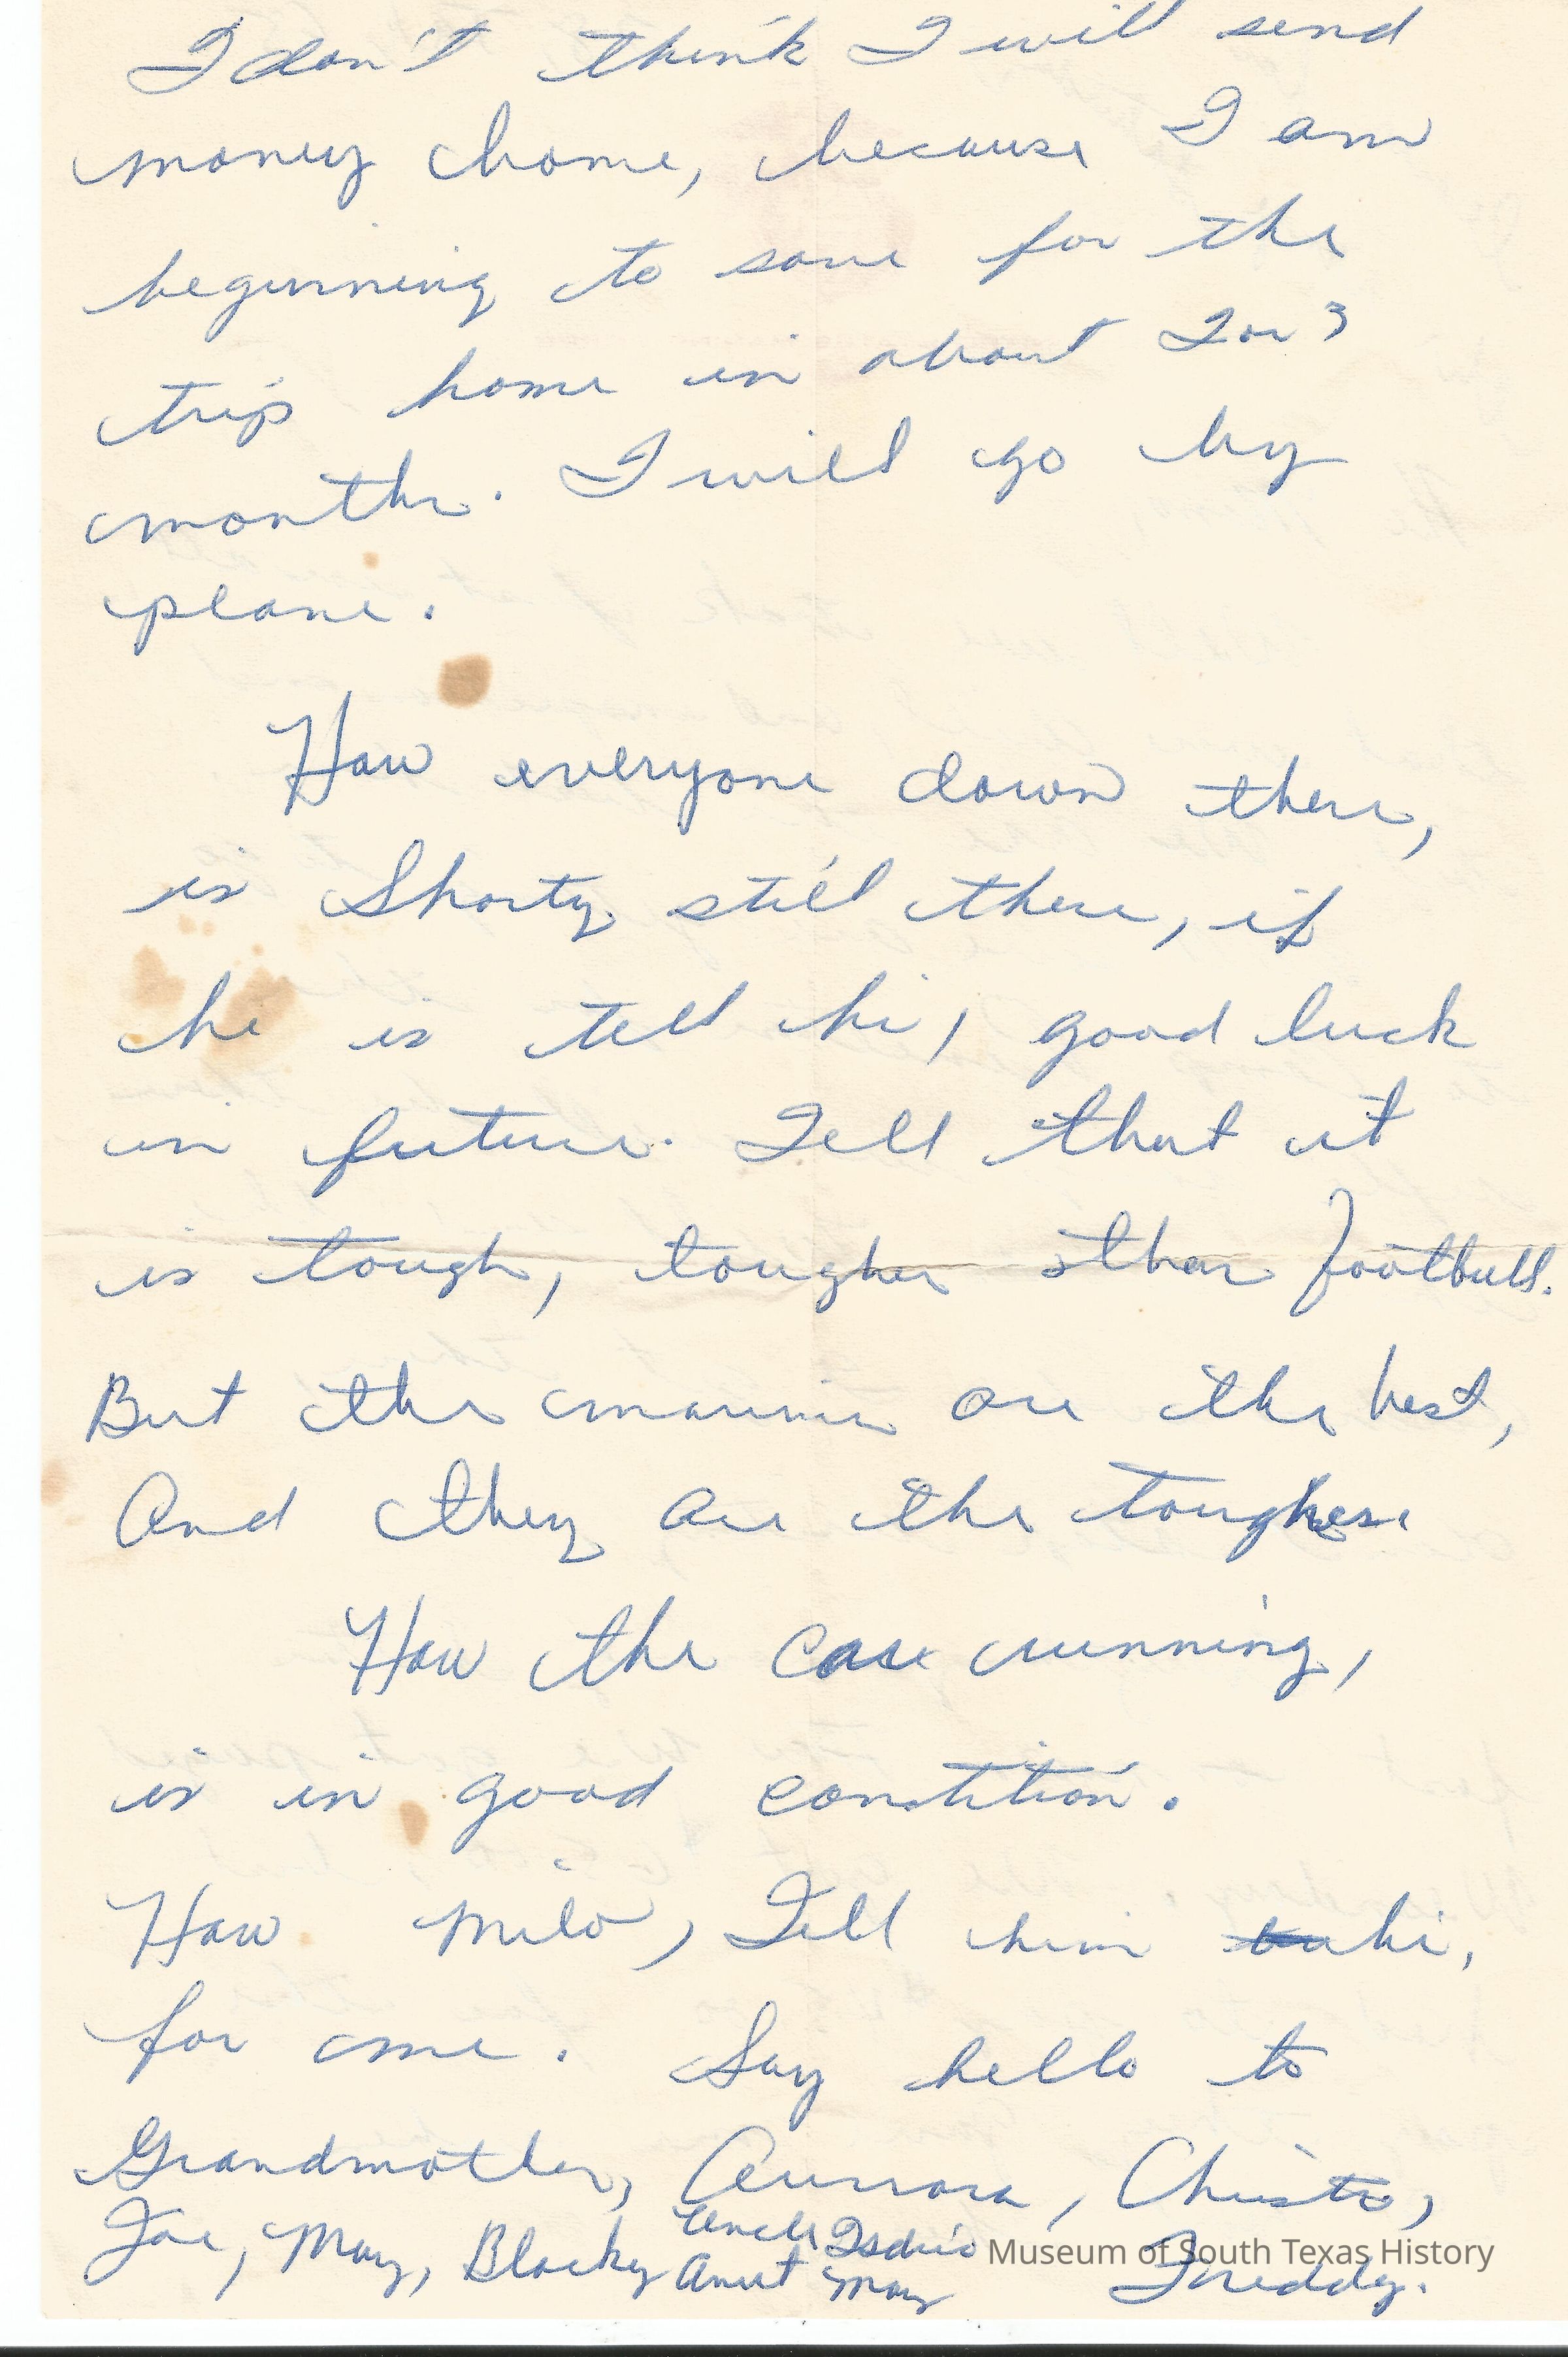 I don't think I will send
money home, because I am
beginning to save for the
trip home in about 2 or 3
months. I will go by
plane.
How everyone down there,
is Shorty still there, if
he is tell hi, good luck
in future. Tell that it
is tough, tougher than football.
But the marines are the best,
And they are the toughest
How the car running,
is in good contition.
How Milo, Tell him hi,
for me. Say hello to
Grandmother, Aurrora, Christo,
Joe, May, Blacky Uncle Isdrio
Aunt May
Freddy.
Museum of South Texas History